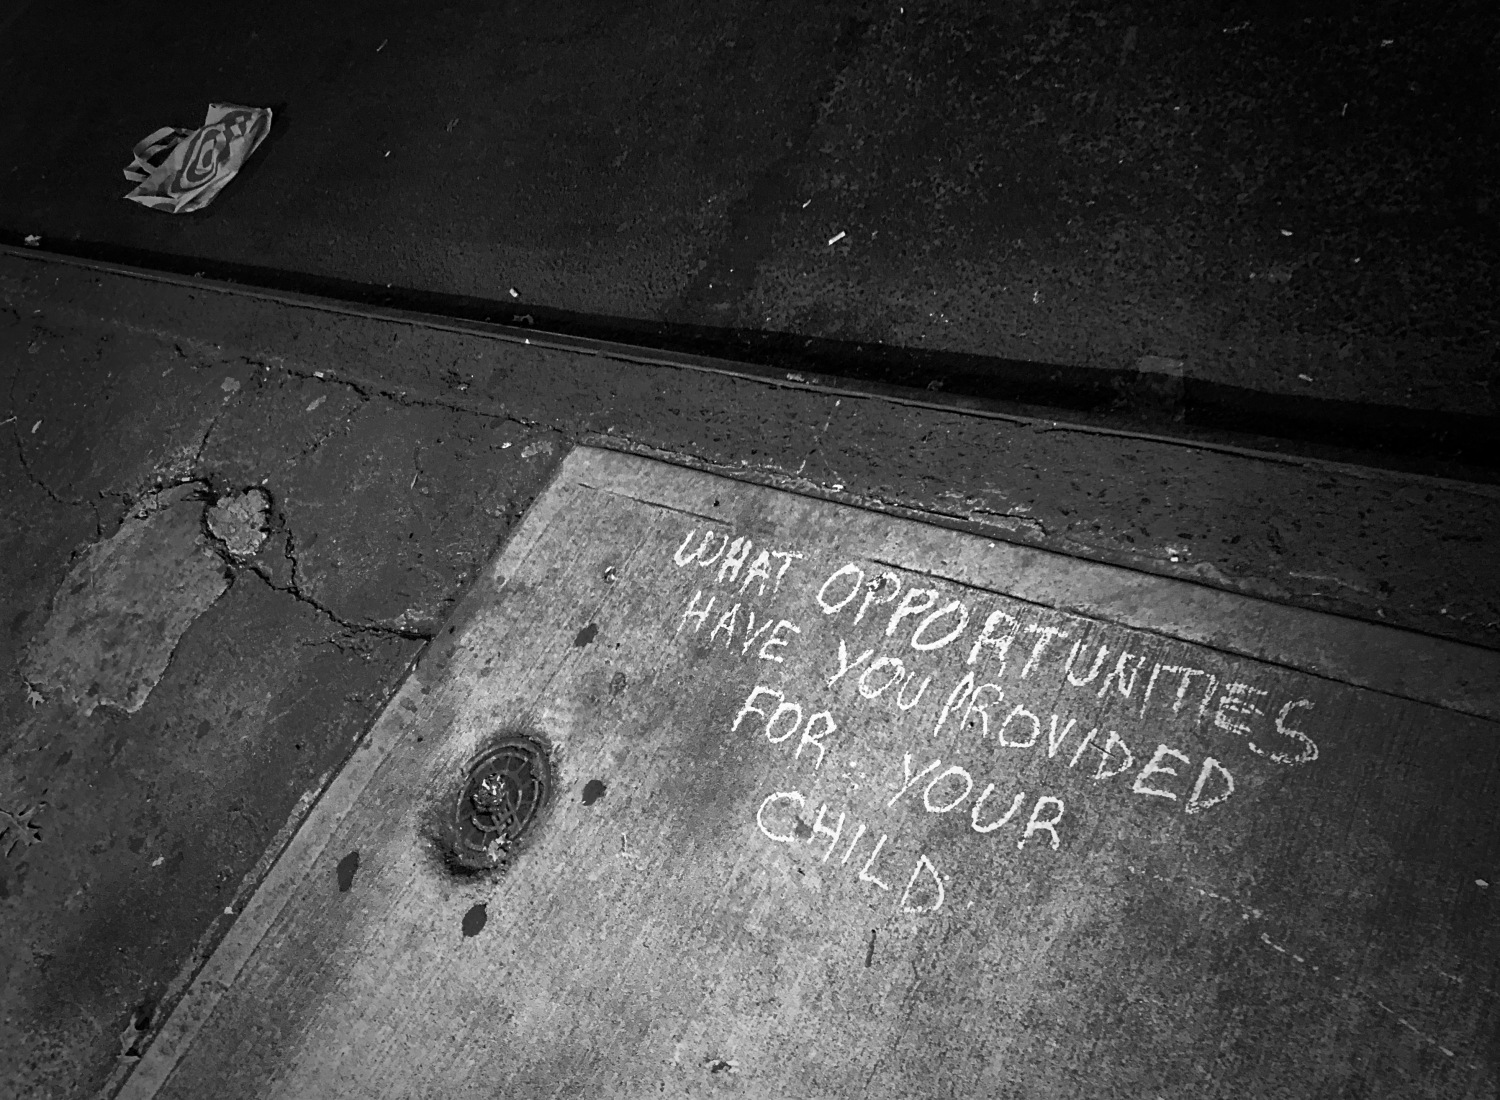 WHAT OPPORTUNITIES
HAVE YOU PROVIDED
FOR YOUR
CHILD